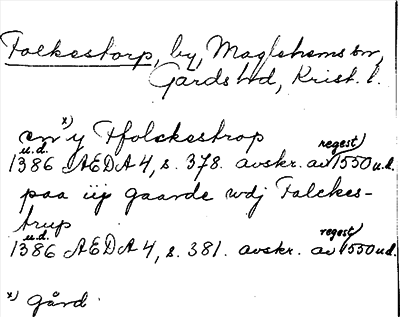 Folkestorp, by, Maglehems sn,
Gärds hd, Krist. l.
en x) y Ffolckestrop
1386 u.d. AEDA 4, s. 378. avskr. av regest) 1550 u.d.
paa iij gaarde wdj Falckes-
trup
1386 u.d. AEDA 4, s. 381. avskr. av regest) 1550 u.d.
x) gård